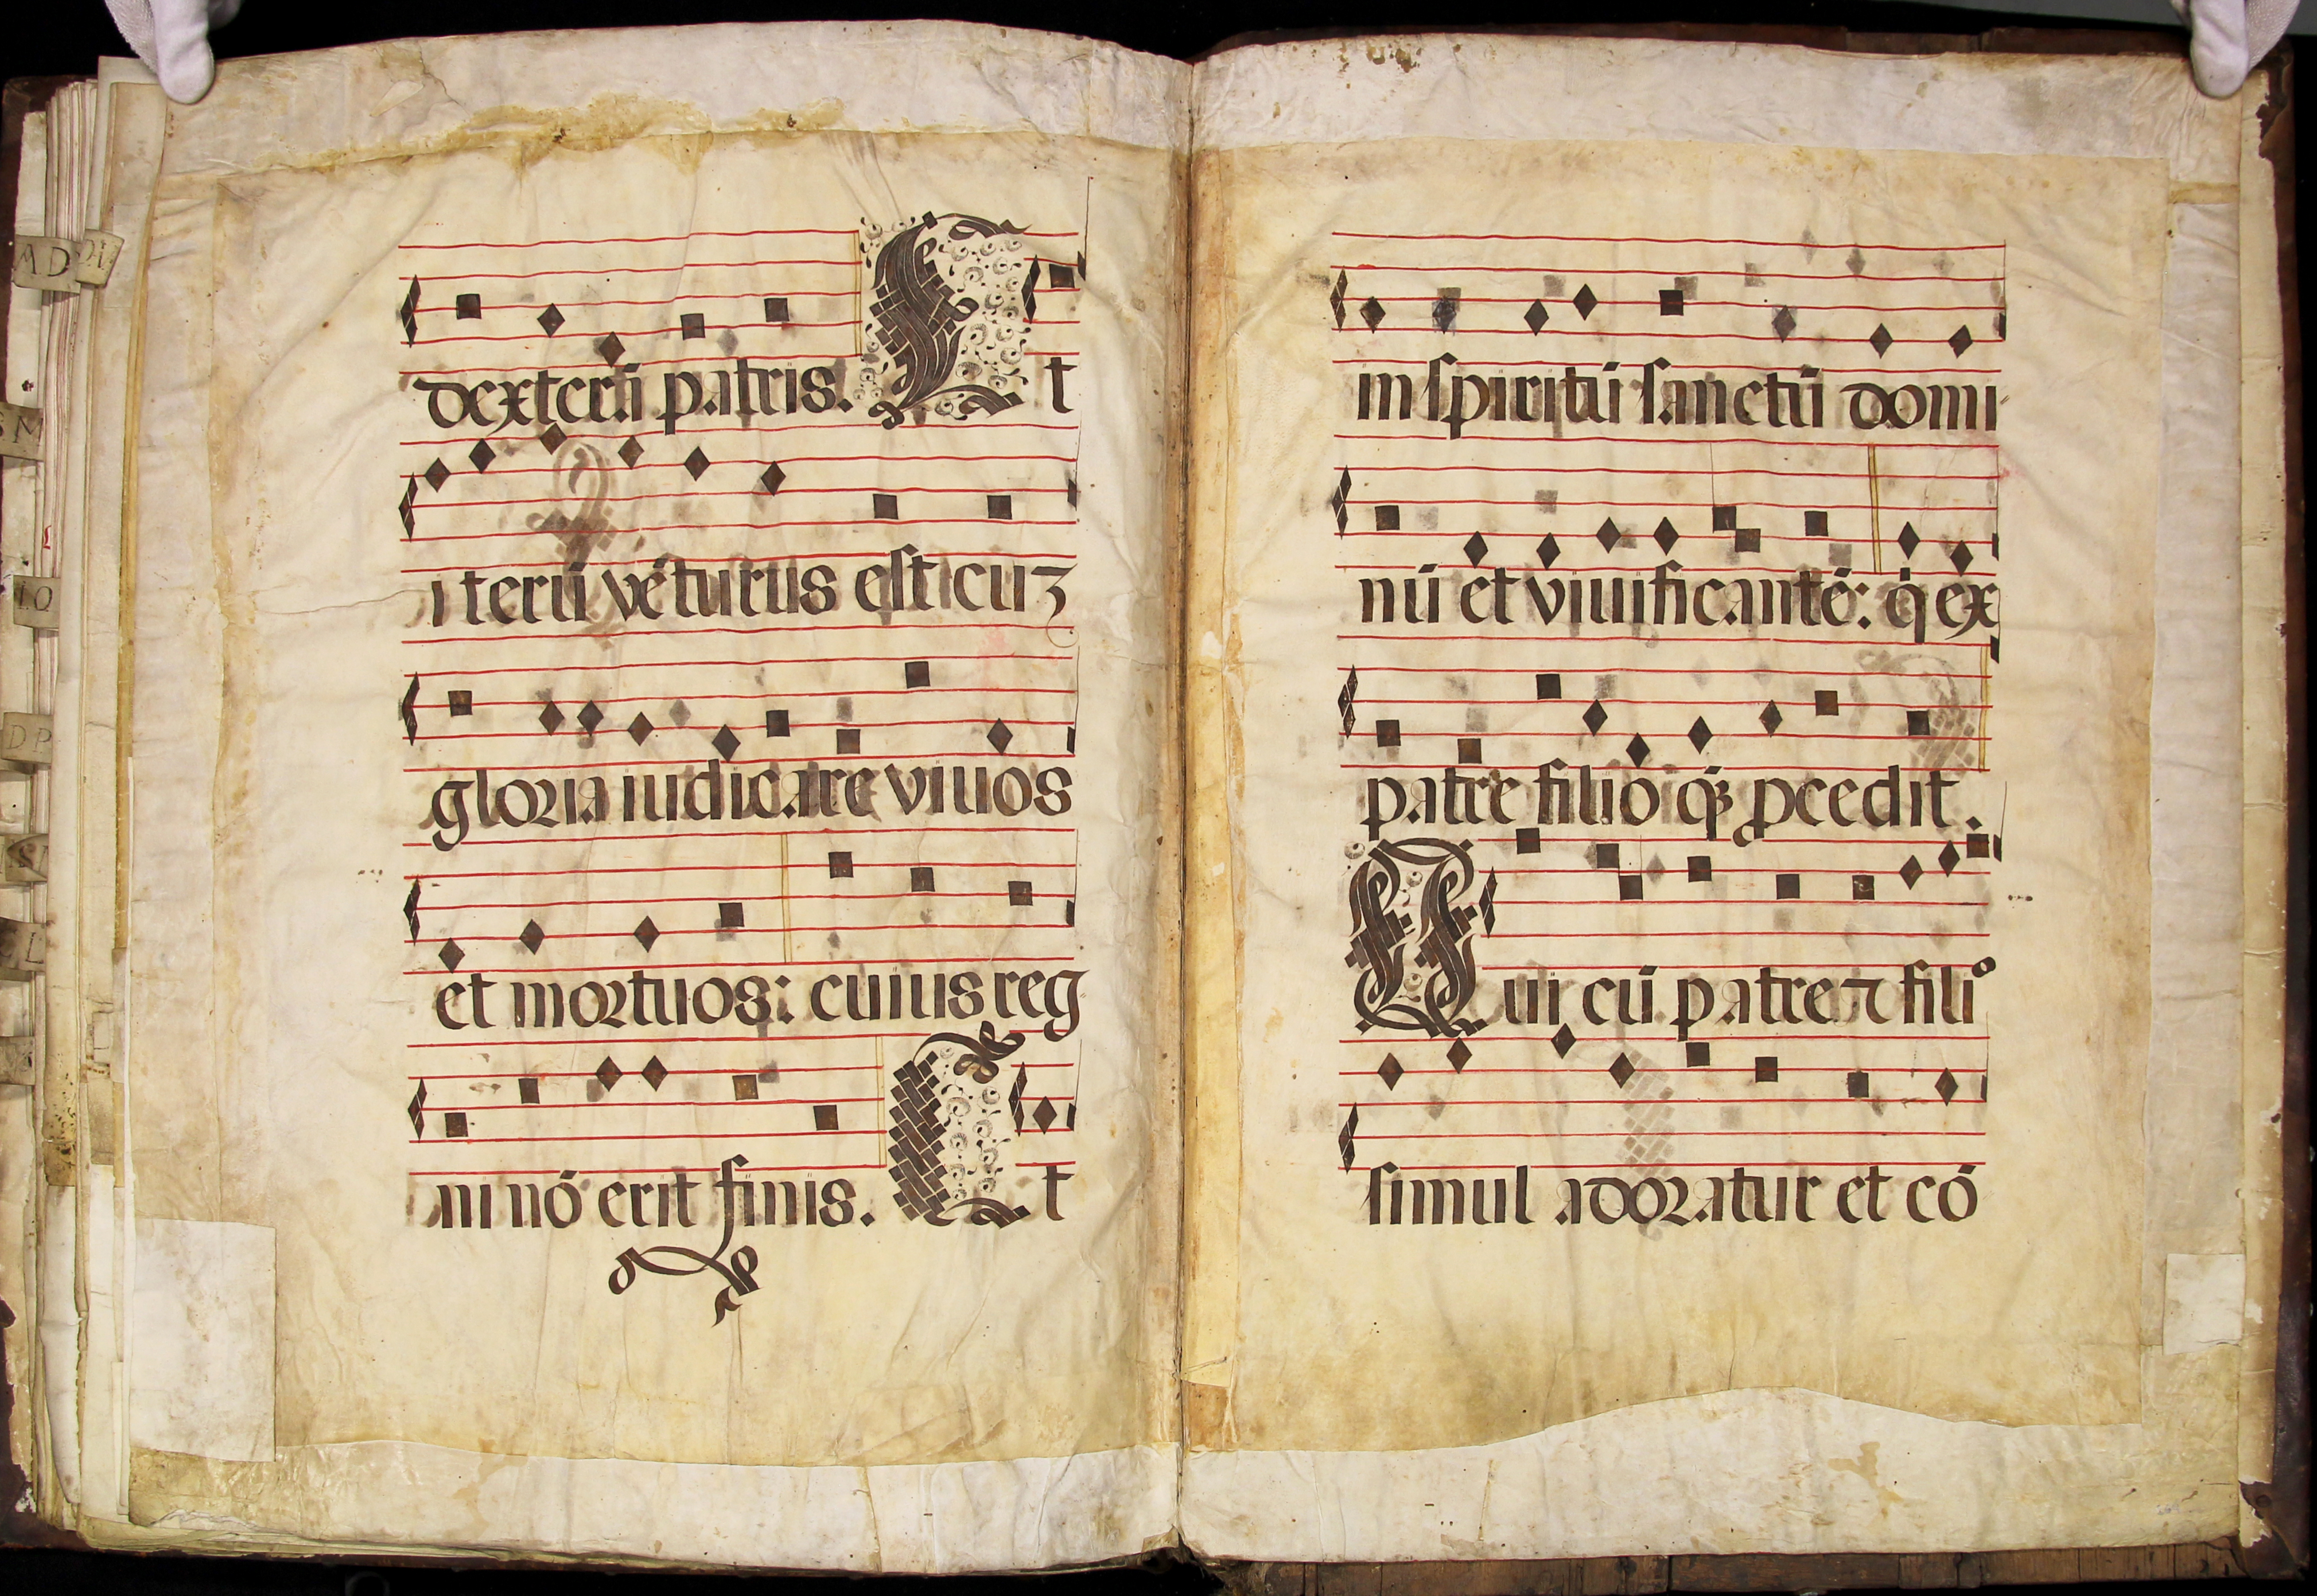 AD
SM
IO
DP
dexterã patris. Et
iterũ vẽturus est cuʒ
gloria iudicare viuos
et mortuos: cuius reg
ni nõ erit finis. Et
in spiritũ sanctũ domi
nũ et viuificantẽ: q̇ ex
patre filioqʒ ꝓcedit.
Qui cũ patre ⁊ filio
simul adoratur et cõ